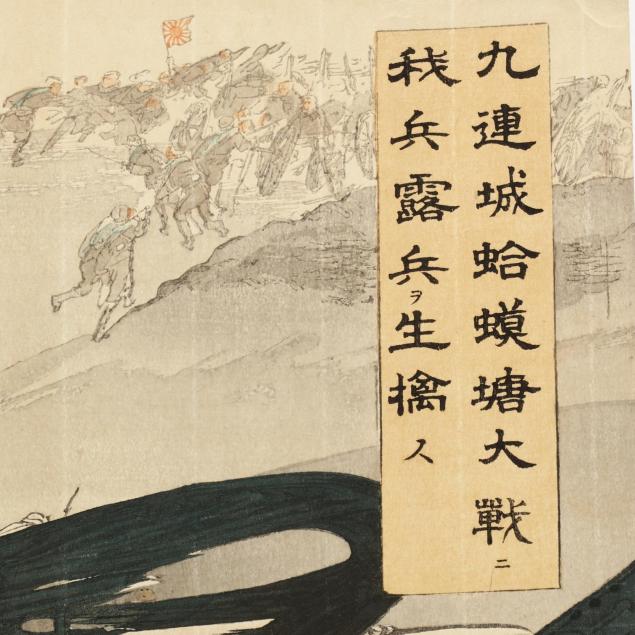 九連城蛤蟆塘大戰ニ
我兵露兵ヲ生擒ス